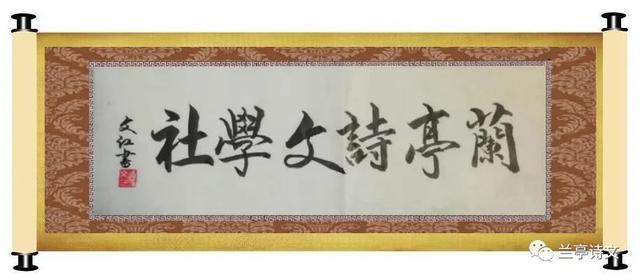 蘭亭詩文學社
文红書
兰亭诗文